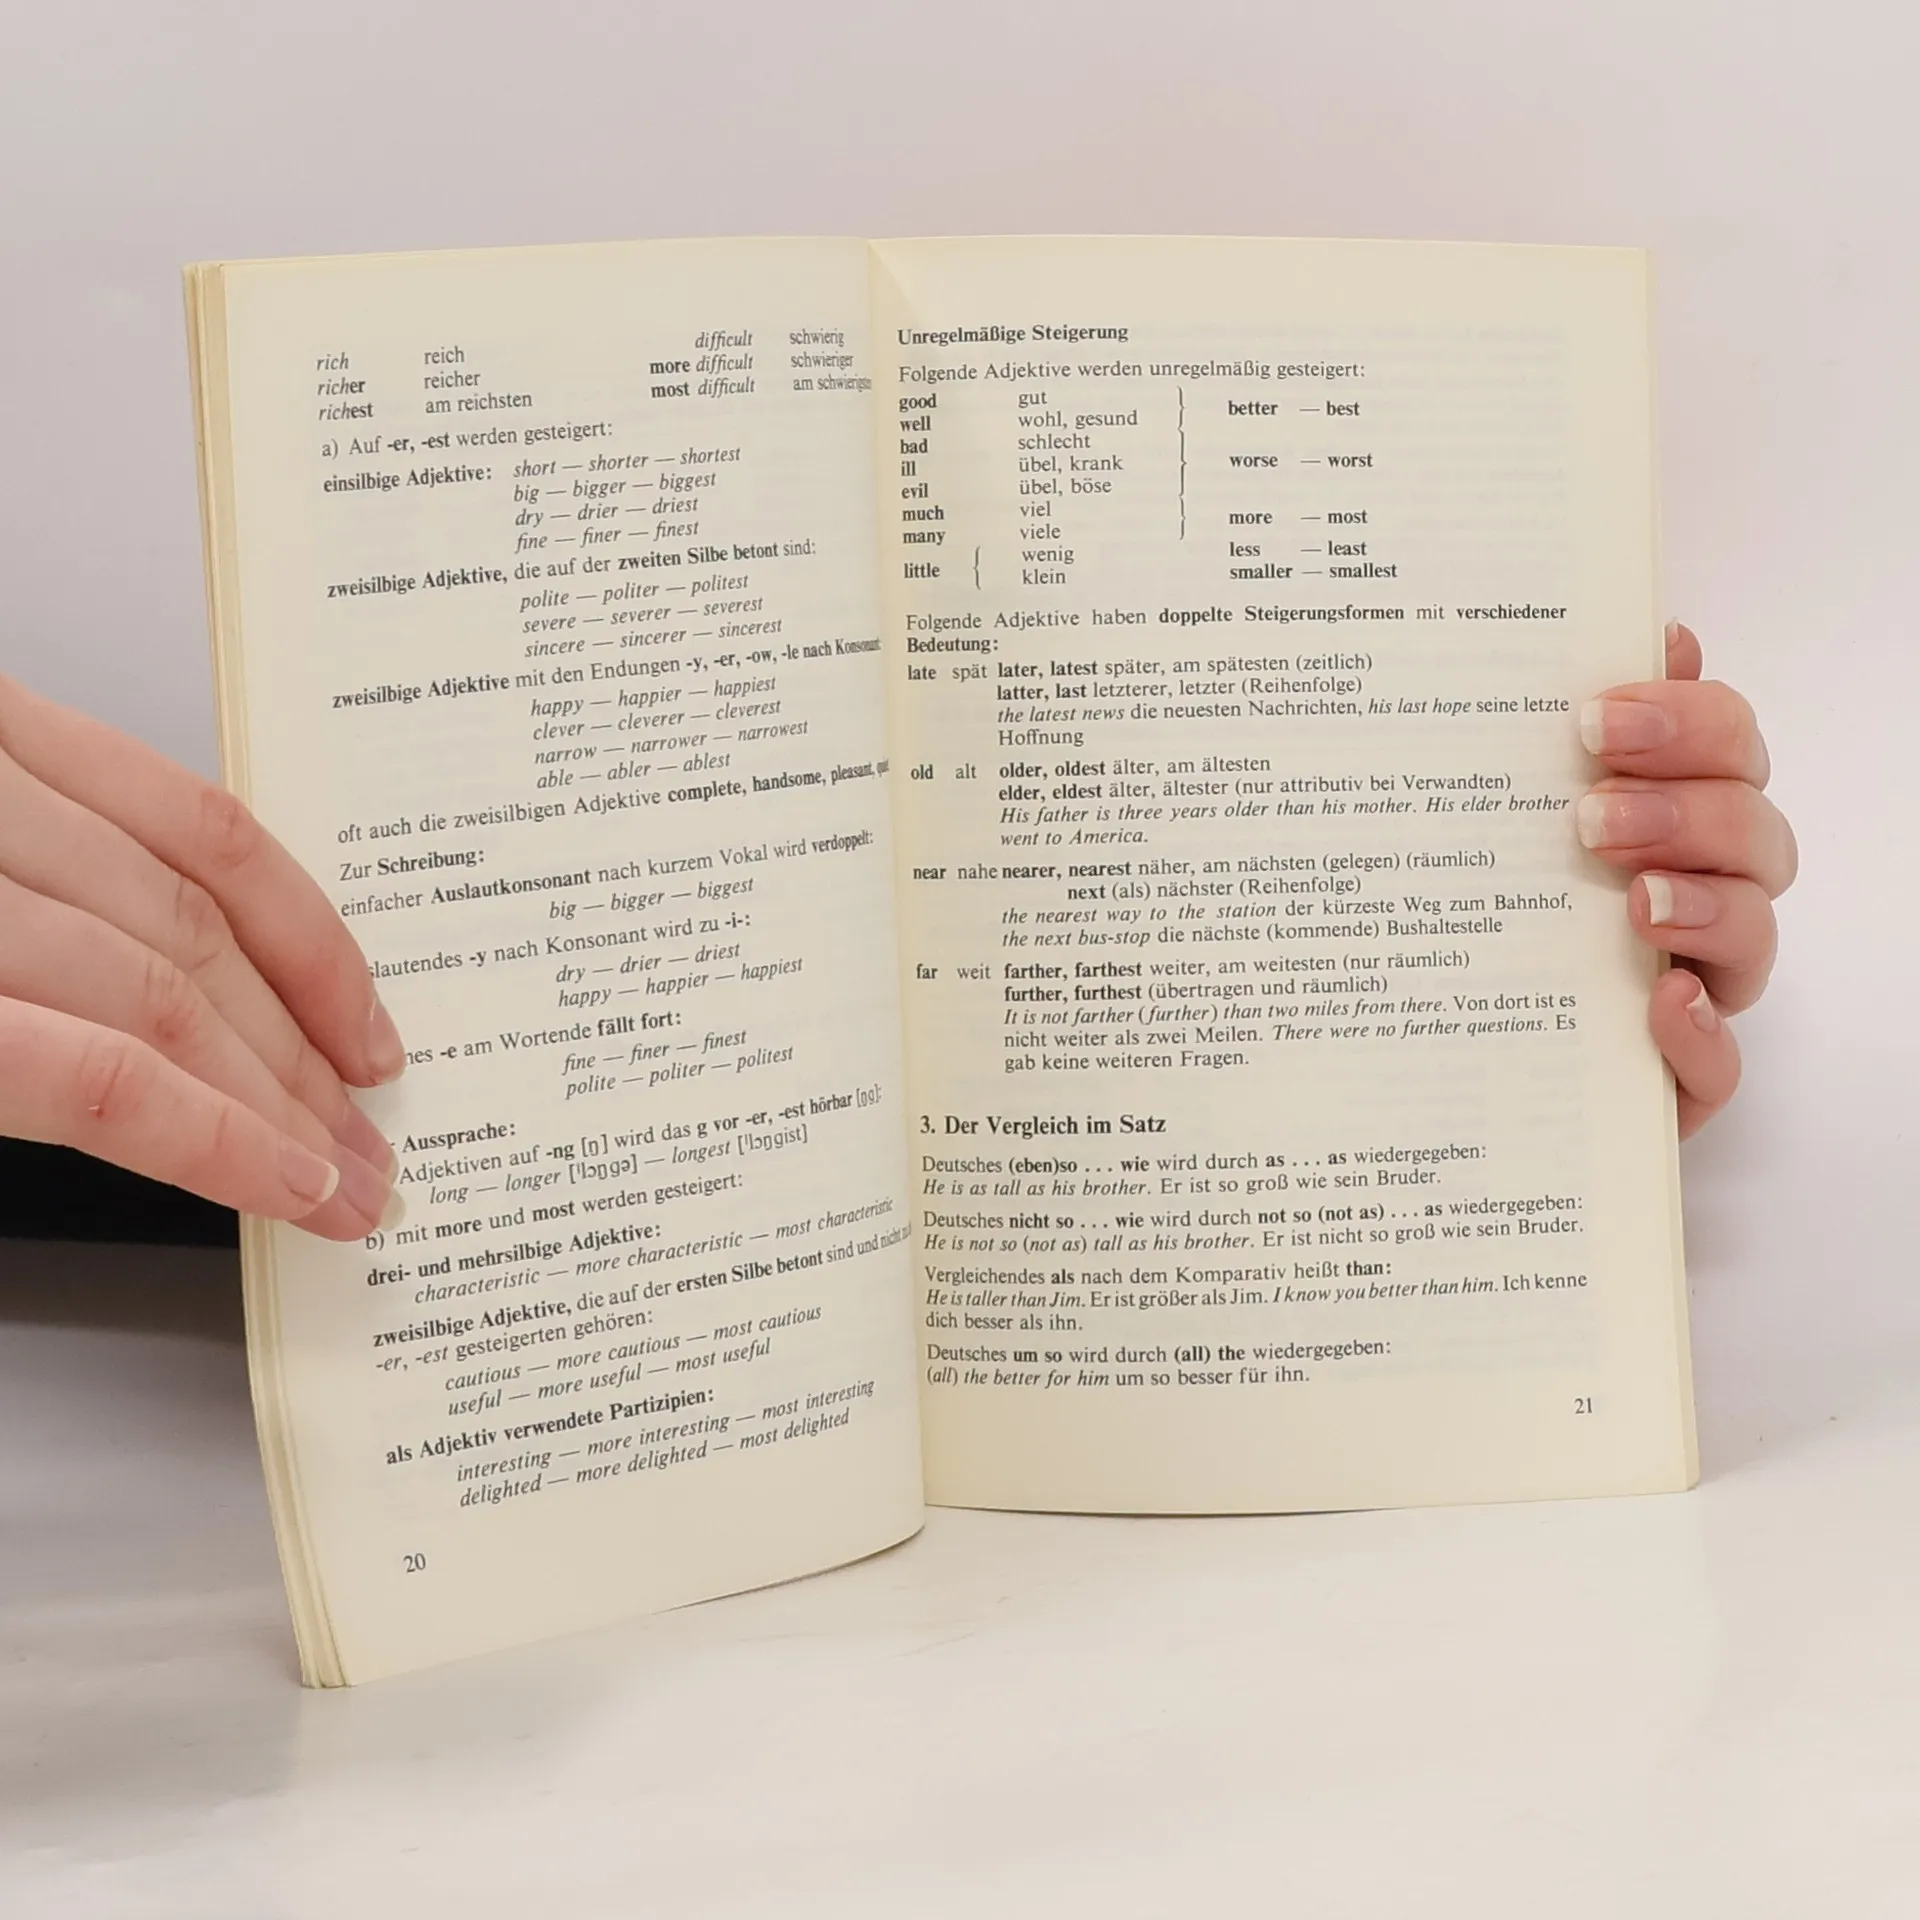 rich reich difficult schwierig
richer reicher more difficult schwieriger
richest am reichsten most difficult am
a) Auf -er, -est werden gesteigert:
einsilbige Adjektive: short — shorter — shortest
big — bigger — biggest
dry — drier — driest
fine — finer — finest
zweisilbige Adjektive, die auf der zweiten Silbe betont sind:
polite — politer — politest
severe — severer — severest
sincere — sincerer — sincerest
zweisilbige Adjektive mit den Endungen -y, -er, -ow, -le nach Konsonant:
happy — happier — happiest
clever — cleverer — cleverest
narrow — narrower — narrowest
able — abler — ablest
oft auch die zweisilbigen Adjektive complete, handsome, pleasant,
Zur Schreibung:
einfacher Auslautkonsonant nach kurzem Vokal wird verdoppelt:
big — bigger — biggest
slautendes -y nach Konsonant wird zu -i-:
dry — drier — driest
happy — happier — happiest
mes -e am Wortende fällt fort:
fine — finer — finest
polite — politer — politest
Aussprache:
Adjektiven auf -ng [ŋ] wird das g vor -er, -est hörbar [ŋg]:
long — longer ['lɔŋgə] — longest ['lɔŋgist]
b) mit more und most werden gesteigert:
drei- und mehrsilbige Adjektive:
characteristic — more characteristic — most characteristic
zweisilbige Adjektive, die auf der ersten Silbe betont sind und nicht
-er, -est gesteigerten gehören:
cautious — more cautious — most cautious
useful — more useful — most useful
als Adjektiv verwendete Partizipien:
interesting — more interesting — most interesting
delighted — more delighted — most delighted
20
Unregelmäßige Steigerung
Folgende Adjektive werden unregelmäßig gesteigert:
good gut
well wohl, gesund
better — best
bad schlecht
ill übel, krank
evil übel, böse
worse — worst
much viel
many viele
more — most
little { wenig less — least
klein smaller — smallest
Folgende Adjektive haben doppelte Steigerungsformen mit verschiedener
Bedeutung:
late spät later, latest später, am spätesten (zeitlich)
latter, last letzterer, letzter (Reihenfolge)
the latest news die neuesten Nachrichten, his last hope seine letzte
Hoffnung
old alt older, oldest älter, am ältesten
elder, eldest älter, ältester (nur attributiv bei Verwandten)
His father is three years older than his mother. His elder brother
went to America.
near nahe nearer, nearest näher, am nächsten (gelegen) (räumlich)
next (als) nächster (Reihenfolge)
the nearest way to the station der kürzeste Weg zum Bahnhof,
the next bus-stop die nächste (kommende) Bushaltestelle
far weit farther, farthest weiter, am weitesten (nur räumlich)
further, furthest (übertragen und räumlich)
It is not farther (further) than two miles from there. Von dort ist es
nicht weiter als zwei Meilen. There were no further questions. Es
gab keine weiteren Fragen.
3. Der Vergleich im Satz
Deutsches (eben)so ... wie wird durch as ... as wiedergegeben:
He is as tall as his brother. Er ist so groß wie sein Bruder.
Deutsches nicht so ... wie wird durch not so (not as) ... as wiedergegeben:
He is not so (not as) tall as his brother. Er ist nicht so groß wie sein Bruder.
Vergleichendes als nach dem Komparativ heißt than:
He is taller than Jim. Er ist größer als Jim. I know you better than him. Ich kenne
dich besser als ihn.
Deutsches um so wird durch (all) the wiedergegeben:
(all) the better for him um so besser für ihn.
21